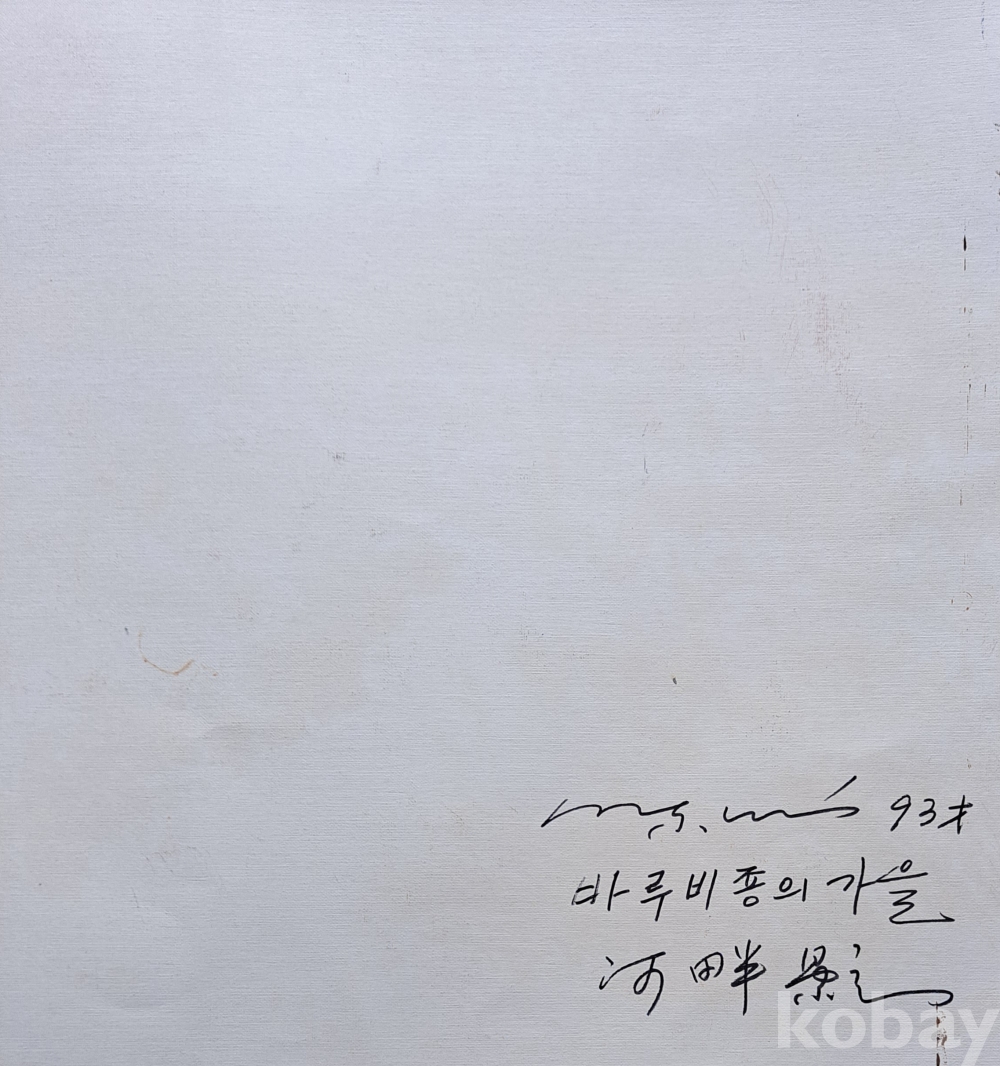 93才
바루비죵의 가을
河畔 景
kobay